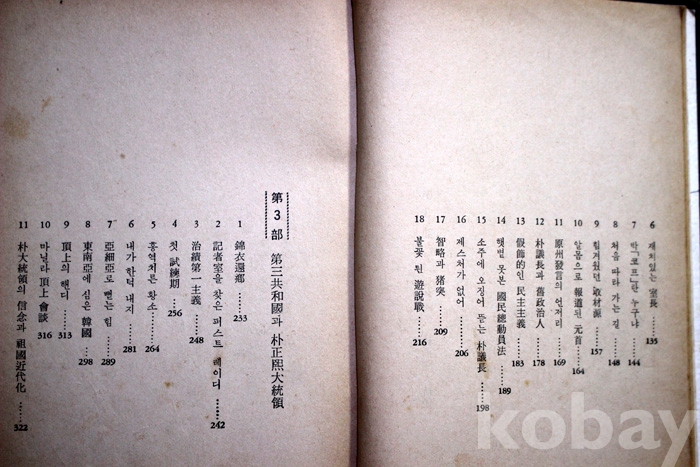 6 재치있는 室長 ……135
7 탁「코프」란 누구냐 ……144
8 처음 따라 가는 길 ……148
9 힘겨웠던 取材源 ……157
10 알몸으로 報道된 元首 ……164
11 原州發言의 언저리 ……169
12 朴議長과 舊政治人 ……178
13 假飾的인 民主主義 ……183
14 햇볕 못본 國民總動員法 ……189
15 소주에 오징어 뜯는 朴議長 ……198
16 제스처가 없어 ……206
17 智略과 猪突 ……209
18 불꽃 된 遊說戰 ……216
第3部 第三共和國과 朴正熙大統領
1 錦衣還鄕 ……233
2 記者室을 찾은 퍼스트 레이디 ……242
3 治績第一主義 ……248
4 첫 試練期 ……256
5 홍역치른 황소 ……264
6 내가 한턱 내지 ……281
7 亞細亞로 뻗는 힘 ……289
8 東南亞에 심은 韓國 ……298
9 頂上의 핸디 ……313
10 마닐라 頂上會談 ……316
11 朴大統領의 信念과 祖國近代化 ……322
kobay